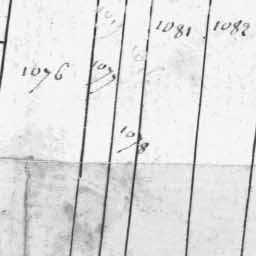 1081 1082
1076 1077
1078